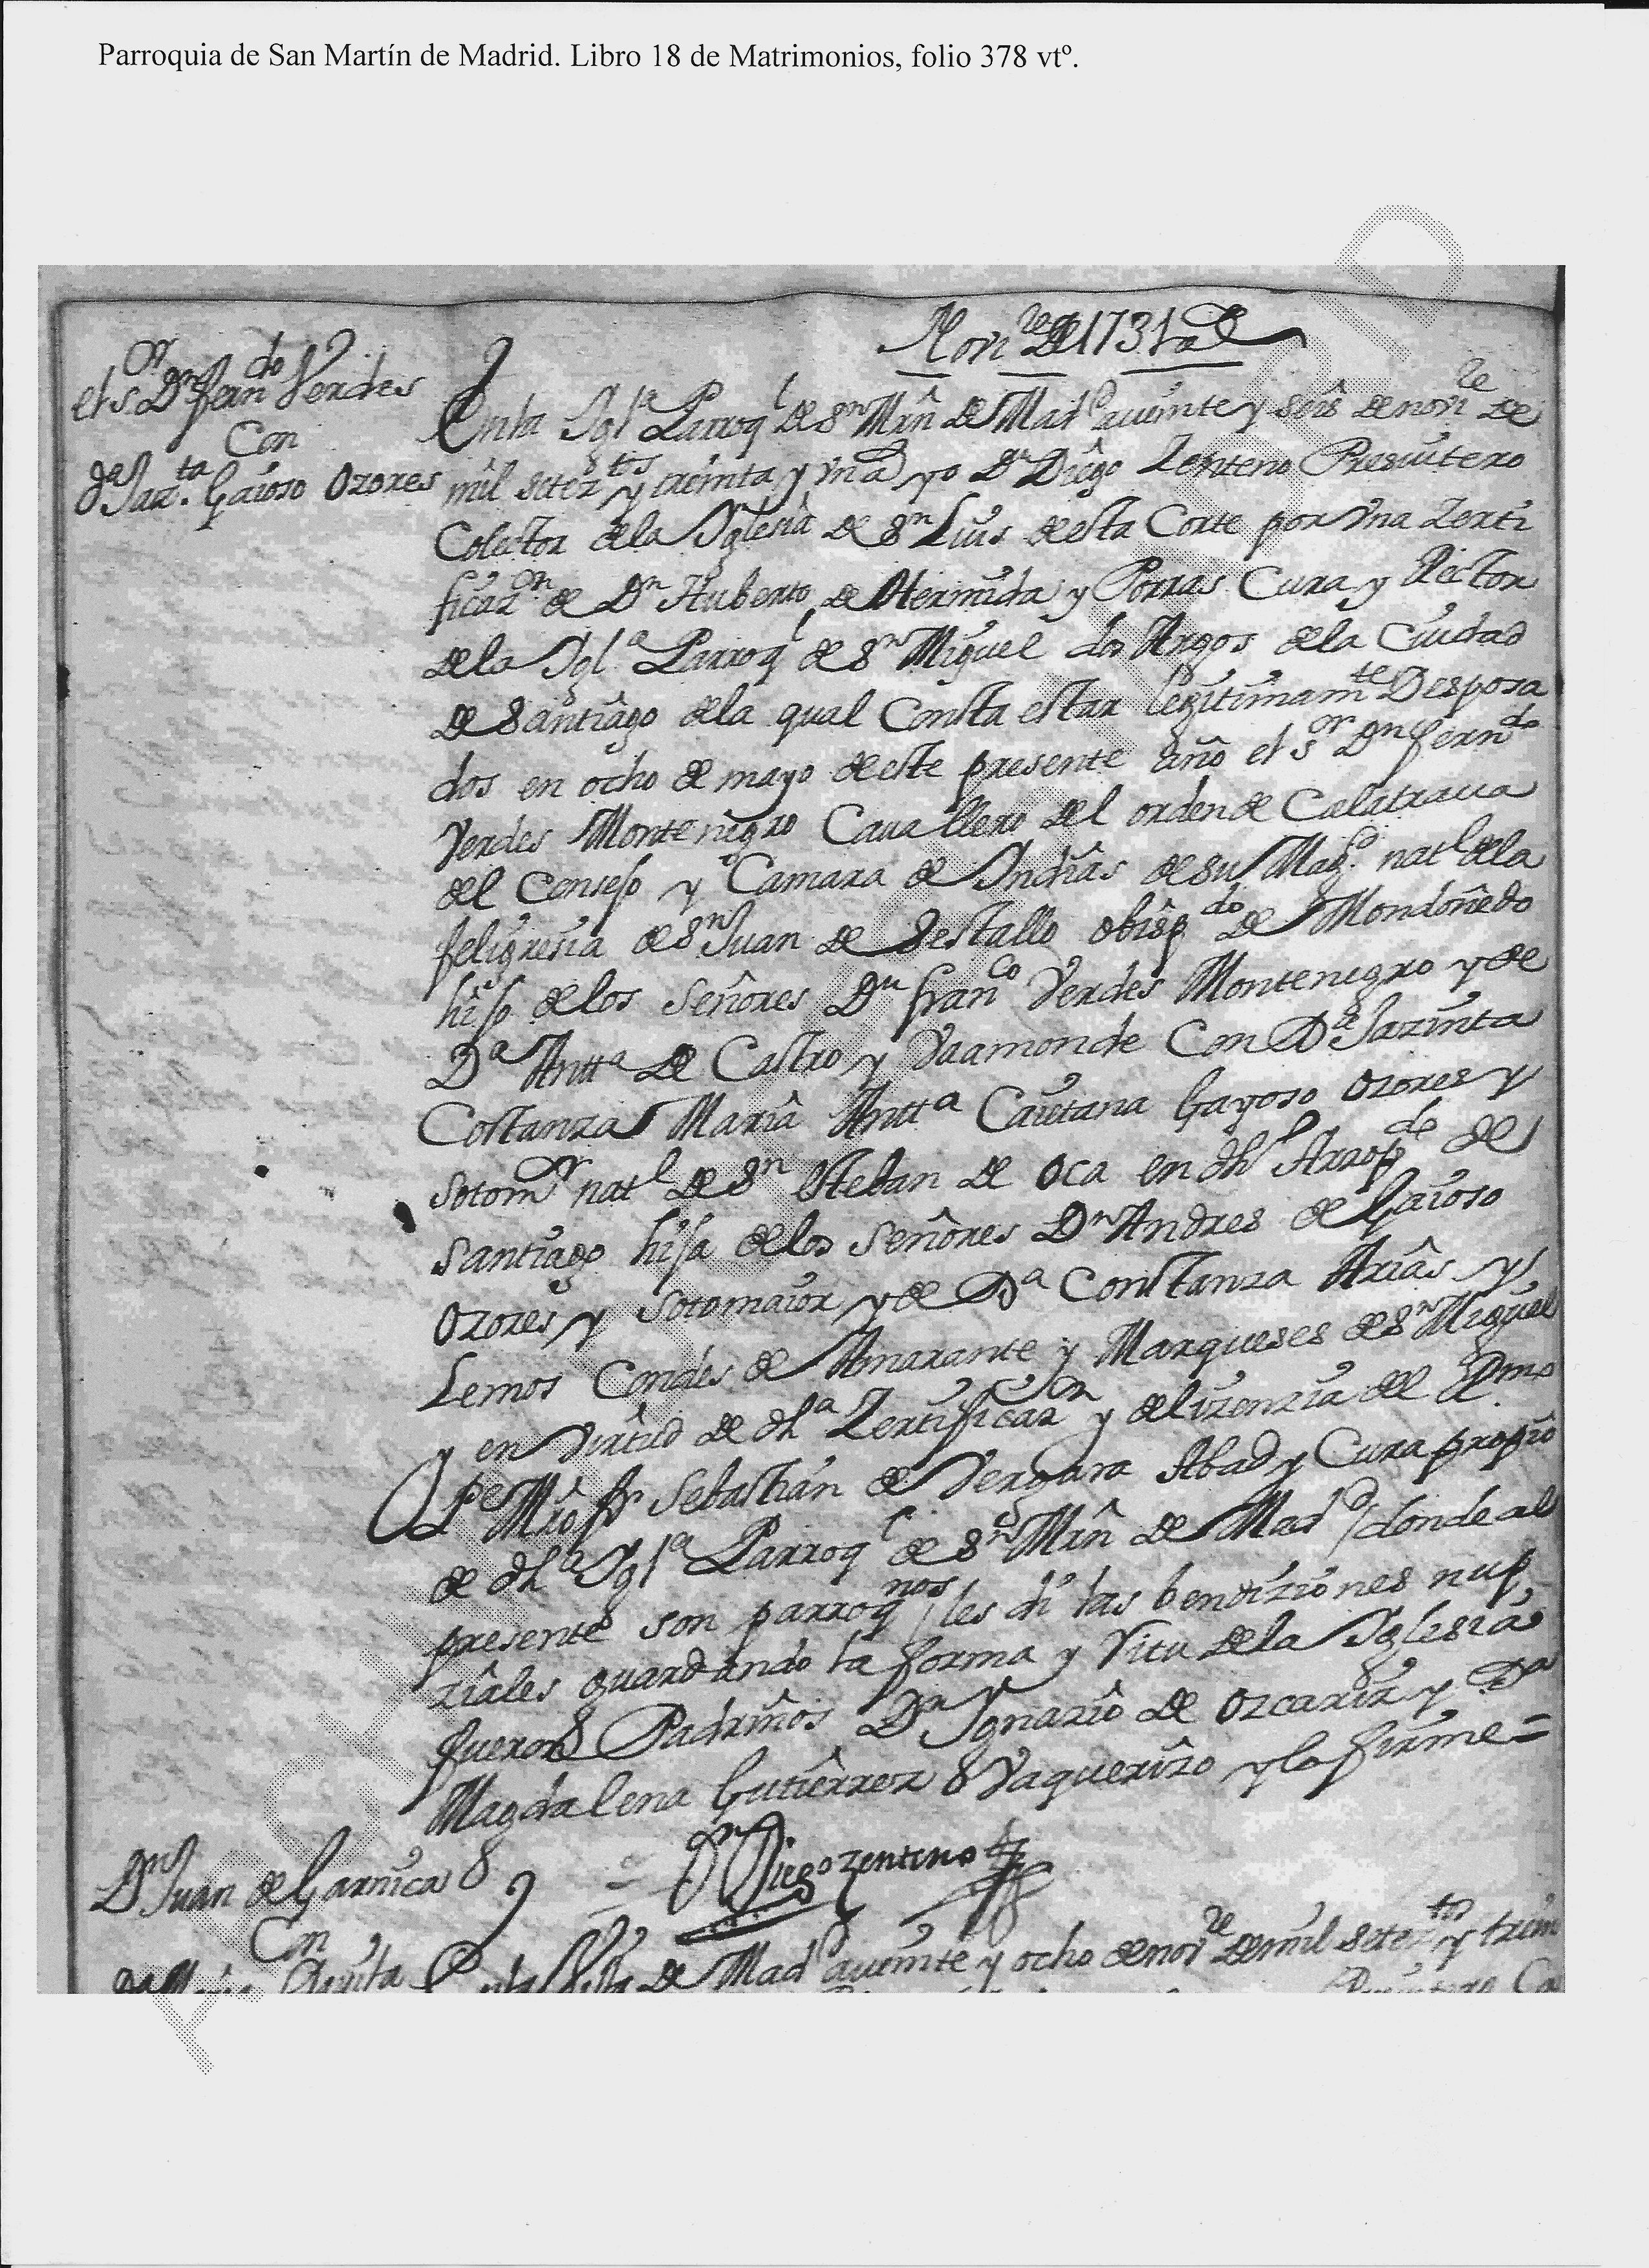 Parroquia de San Martín de Madrid. Libro 18 de Matrimonios, folio 378 vtº.
Nov.re de 1731 as
el s.or Dn fern.do Verdes
Con
da Jaz.ta Gaioso Ozores
En la Igla Parroql de Sn Mrn de Madd a veinte y seis de nov.re de
mil setez.tos y treinta y vno yo Dn Diego Zenteno Presvitero
Colector de la Iglesia de Sn Luis de esta Corte por vna Zerti
ficazon de Dn Huberto de Hermida y Porras Cura y Rector
de la Igla Parroql de Sn Miguel dos Agros de la Ciudad
de Santiago de la qual Consta estar legitimamte Desposa
dos en ocho de mayo de este presente año el sor Dn ferndo
Verdes Montenegro Cauallero del orden de Calatraua
del Consejo y Camara de Indias de su Magd natl de la
feligresia de Sn Juan de Sestallo obispdo de Mondoñedo
hijo de los señores Dn franco Verdes Montenegro y de
Da Antta de Castro y Vaamonde Con Da Jazinta
Costanza Maria Antta Caietana Gayoso Ozores y
Sotomor natl de Sn Esteban de Oca en dho Arzopdo de
Santiago hija de los señores Dn Andres de Gaioso
Ozores y Sotomaior y de Da Constanza Arias y
Lemos Condes de Amarante y Marqueses de Sn Miguel
y en virtud de dha Zertificazn y de lizenzia del Rmo
Pe Mro fr Sebastian de Vergara Abad y Cura propio
de dha Igla Parroql de Sn Mrn de Madd / donde al
presente son parroqnos / les di las bendiziones nup
ziales guardando la forma y Ritu de la Iglesia
fueron Padrinos Dn Ignazio de Ozcariz y Da
Magdalena Gutierrez Vaquerizo y lo firme =
Dn Diego Zenteno
Dn Juan de Garnica
Con
de Madd a veinte y ocho de nov.re de mil setez.tos y trein